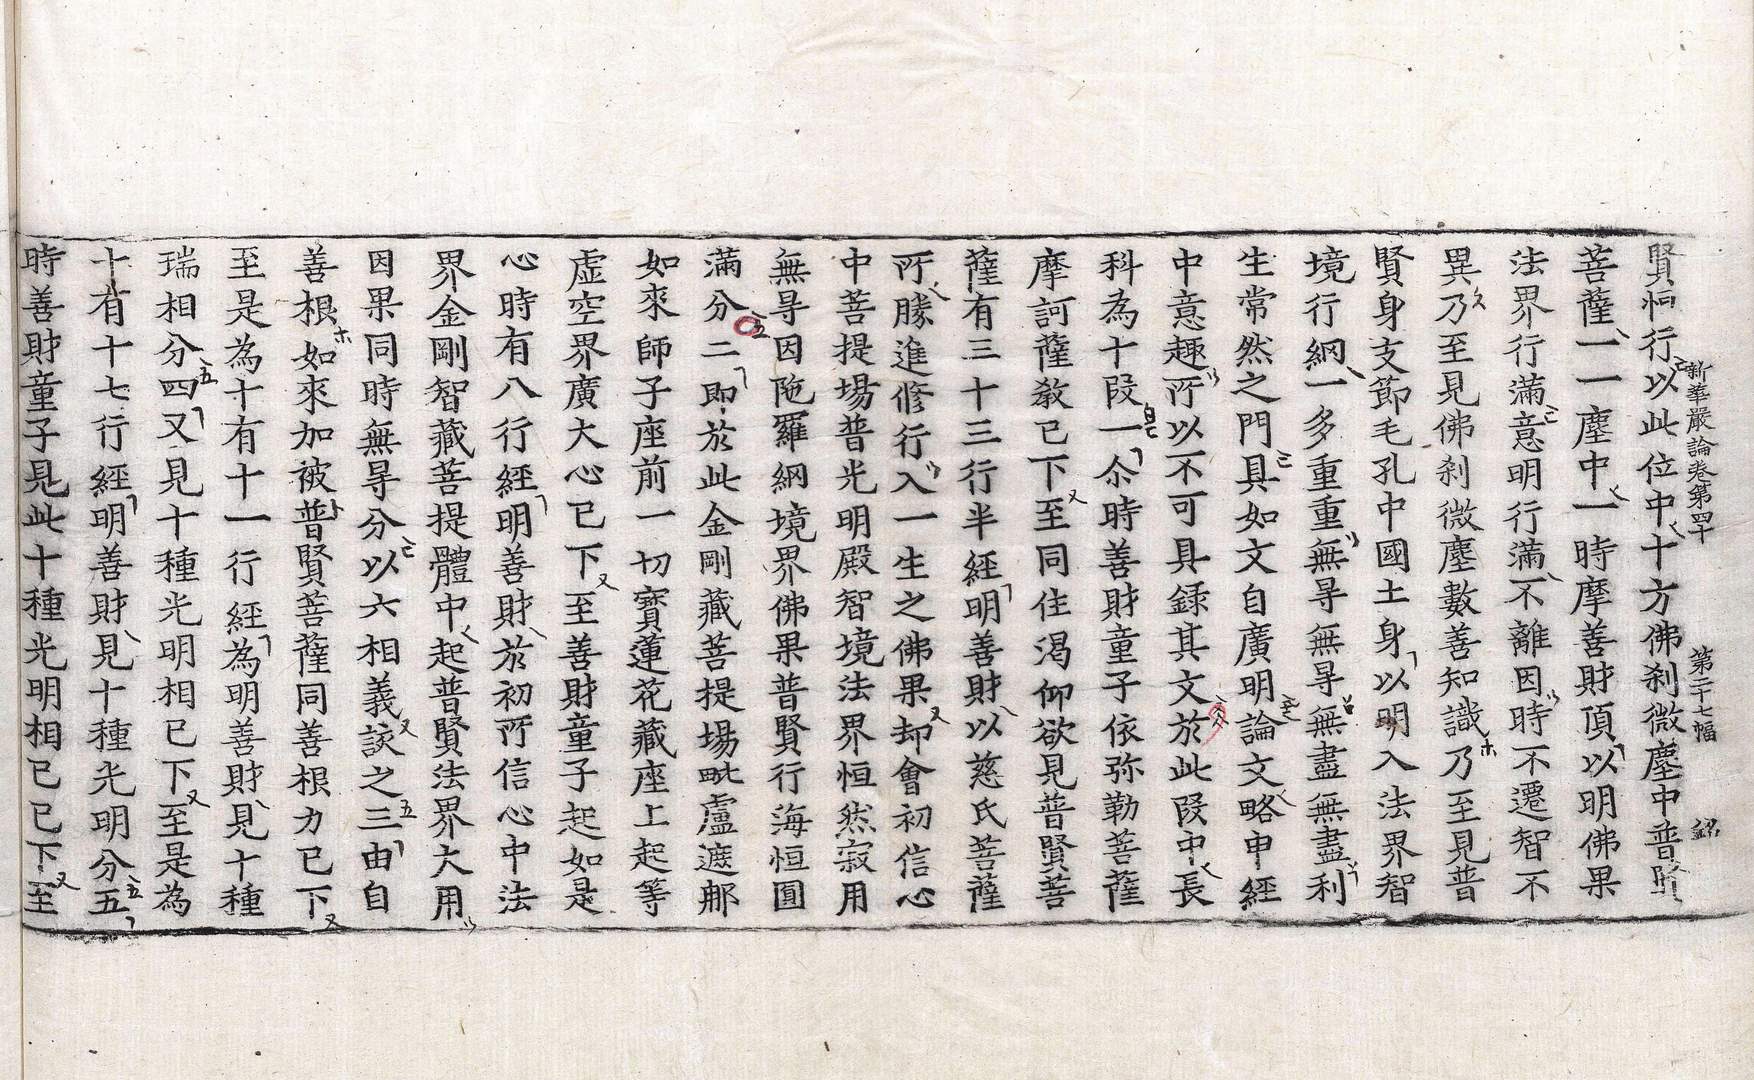 新華嚴論卷第四十　第二十七幅　紹
賢恒行以此位中十方佛刹微塵中普賢
菩薩一一塵中一時摩善財頂以明佛果
法界行滿意明行滿不離因時不遷智不
異乃至見佛刹微塵數善知識乃至見普
賢身支節毛孔中國土身以明入法界智
境行網一多重重無㝵無㝵無盡無盡利
生常然之門具如文自廣明論文略申經
中意趣所以不可具録其文於此段中長
科為十段一尒時善財童子依弥勒菩薩
摩訶薩教已下至同住渴仰欲見普賢菩
薩有三十三行半經明善財以慈氏菩薩
所勝進修行入一生之佛果却會初信心
中菩提場普光明殿智境法界恒然寂用
無㝵因陁羅網境界佛果普賢行海恒圓
滿分二即於此金剛藏菩提場毗盧遮那
如來師子座前一切寶蓮花藏座上起等
虛空界廣大心已下至善財童子起如是
心時有八行經明善財於初所信心中法
界金剛智藏菩提體中起普賢法界大用
因果同時無㝵分以六相義該之三由自
善根如來加被普賢菩薩同善根力已下
至是為十有十一行經為明善財見十種
瑞相分四又見十種光明相已下至是為
十有十七行經明善財見十種光明分五
時善財童子見此十種光明相已已下至